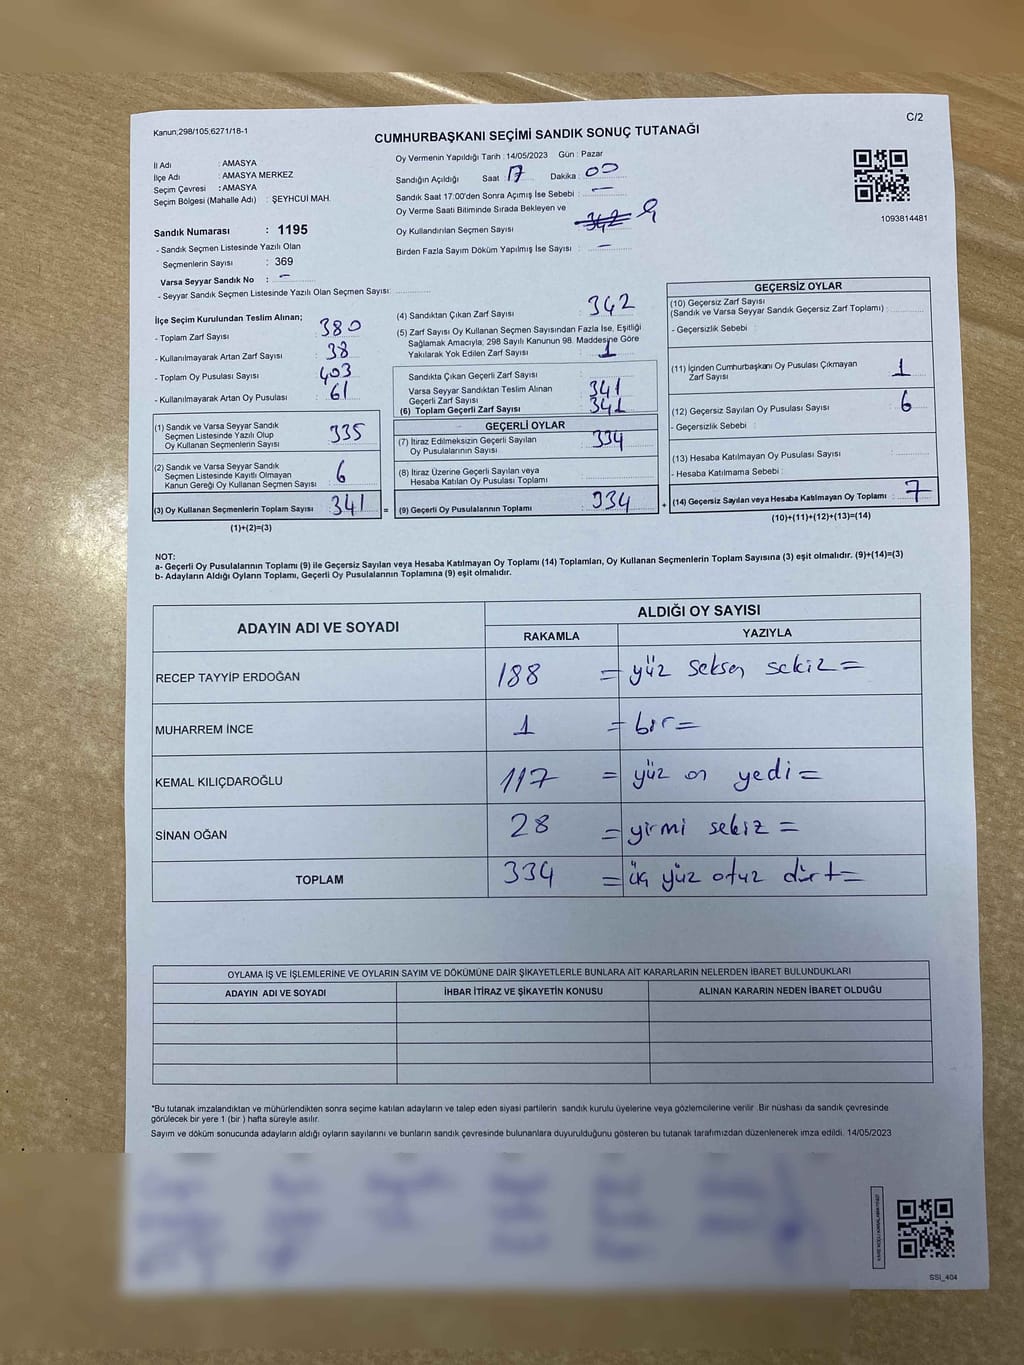 Kanun;298/105,6271/18-1
C/2
CUMHURBAŞKANI SEÇİMİ SANDIK SONUÇ TUTANAĞI
İl Adı : AMASYA
İlçe Adı : AMASYA MERKEZ
Seçim Çevresi : AMASYA
Seçim Bölgesi (Mahalle Adı) : ŞEYHCUİ MAH.
Sandık Numarası : 1195
- Sandık Seçmen Listesinde Yazılı Olan
Seçmenlerin Sayısı : 369
Varsa Seyyar Sandık No : -
- Seyyar Sandık Seçmen Listesinde Yazılı Olan Seçmen Sayısı:
Oy Vermenin Yapıldığı Tarih : 14/05/2023 Gün : Pazar
Sandığın Açıldığı Saat 17 Dakika : 00
Sandık Saat 17:00'den Sonra Açımış İse Sebebi : -
Oy Verme Saati Bitiminde Sırada Bekleyen ve
Oy Kullandırılan Seçmen Sayısı 342
Birden Fazla Sayım Döküm Yapılmış İse Sayısı : -
1093814481
İlçe Seçim Kurulundan Teslim Alınan;
- Toplam Zarf Sayısı : 380
- Kullanılmayarak Artan Zarf Sayısı : 38
- Toplam Oy Pusulası Sayısı : 403
- Kullanılmayarak Artan Oy Pusulası : 61
(1) Sandık ve Varsa Seyyar Sandık
Seçmen Listesinde Yazılı Olup
Oy Kullanan Seçmenlerin Sayısı : 335
(2) Sandık ve Varsa Seyyar Sandık
Seçmen Listesinde Kayıtlı Olmayan
Kanun Gereği Oy Kullanan Seçmen Sayısı : 6
(3) Oy Kullanan Seçmenlerin Toplam Sayısı : 341 =
(1)+(2)=(3)
(4) Sandıktan Çıkan Zarf Sayısı : 342
(5) Zarf Sayısı Oy Kullanan Seçmen Sayısından Fazla İse, Eşitliği
Sağlamak Amacıyla; 298 Sayılı Kanunun 98. Maddesine Göre
Yakılarak Yok Edilen Zarf Sayısı : 1
Sandıkta Çıkan Geçerli Zarf Sayısı :
Varsa Seyyar Sandıktan Teslim Alınan
Geçerli Zarf Sayısı : 341
(6) Toplam Geçerli Zarf Sayısı : 341
GEÇERLİ OYLAR
(7) İtiraz Edilmeksizin Geçerli Sayılan
Oy Pusulalarının Sayısı : 334
(8) İtiraz Üzerine Geçerli Sayılan veya
Hesaba Katılan Oy Pusulası Toplamı :
(9) Geçerli Oy Pusulalarının Toplamı : 334 +
GEÇERSİZ OYLAR
(10) Geçersiz Zarf Sayısı
(Sandık ve Varsa Seyyar Sandık Geçersiz Zarf Toplamı) :
- Geçersizlik Sebebi :
(11) İçinden Cumhurbaşkanı Oy Pusulası Çıkmayan
Zarf Sayısı : 1
(12) Geçersiz Sayılan Oy Pusulası Sayısı : 6
- Geçersizlik Sebebi :
(13) Hesaba Katılmayan Oy Pusulası Sayısı :
- Hesaba Katılmama Sebebi :
(14) Geçersiz Sayılan veya Hesaba Katılmayan Oy Toplamı : 7
(10)+(11)+(12)+(13)=(14)
NOT:
a- Geçerli Oy Pusulalarının Toplamı (9) ile Geçersiz Sayılan veya Hesaba Katılmayan Oy Toplamı (14) Toplamları, Oy Kullanan Seçmenlerin Toplam Sayısına (3) eşit olmalıdır. (9)+(14)=(3)
b- Adayların Aldığı Oyların Toplamı, Geçerli Oy Pusulalarının Toplamına (9) eşit olmalıdır.
ADAYIN ADI VE SOYADI
ALDIĞI OY SAYISI
RAKAMLA YAZIYLA
RECEP TAYYİP ERDOĞAN 188 = yüz seksen sekiz =
MUHARREM İNCE 1 = bir =
KEMAL KILIÇDAROĞLU 117 = yüz on yedi =
SİNAN OĞAN 28 = yirmi sekiz =
TOPLAM 334 = üç yüz otuz dört =
OYLAMA İŞ VE İŞLEMLERİNE VE OYLARIN SAYIM VE DÖKÜMÜNE DAİR ŞİKAYETLERLE BUNLARA AİT KARARLARIN NELERDEN İBARET BULUNDUKLARI
ADAYIN ADI VE SOYADI İHBAR İTİRAZ VE ŞİKAYETİN KONUSU ALINAN KARARIN NEDEN İBARET OLDUĞU
*Bu tutanak imzalandıktan ve mühürlendikten sonra seçime katılan adayların ve talep eden siyasi partilerin sandık kurulu üyelerine veya gözlemcilerine verilir. Bir nüshası da sandık çevresinde
görülecek bir yere 1 (bir ) hafta süreyle asılır.
Sayım ve döküm sonucunda adayların aldığı oyların sayılarını ve bunların sandık çevresinde bulunanlara duyurulduğunu gösteren bu tutanak tarafımızdan düzenlenerek imza edildi. 14/05/2023
SSİ_404